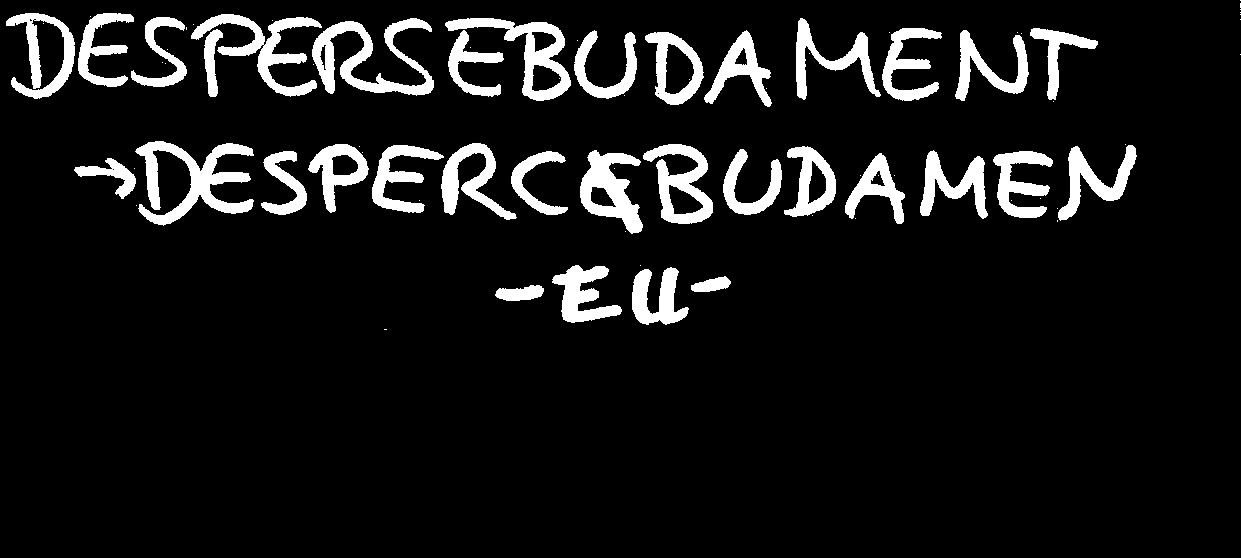 DESPERSEBUDAMENT
→DESPERCEBUDAMEN
-EU-